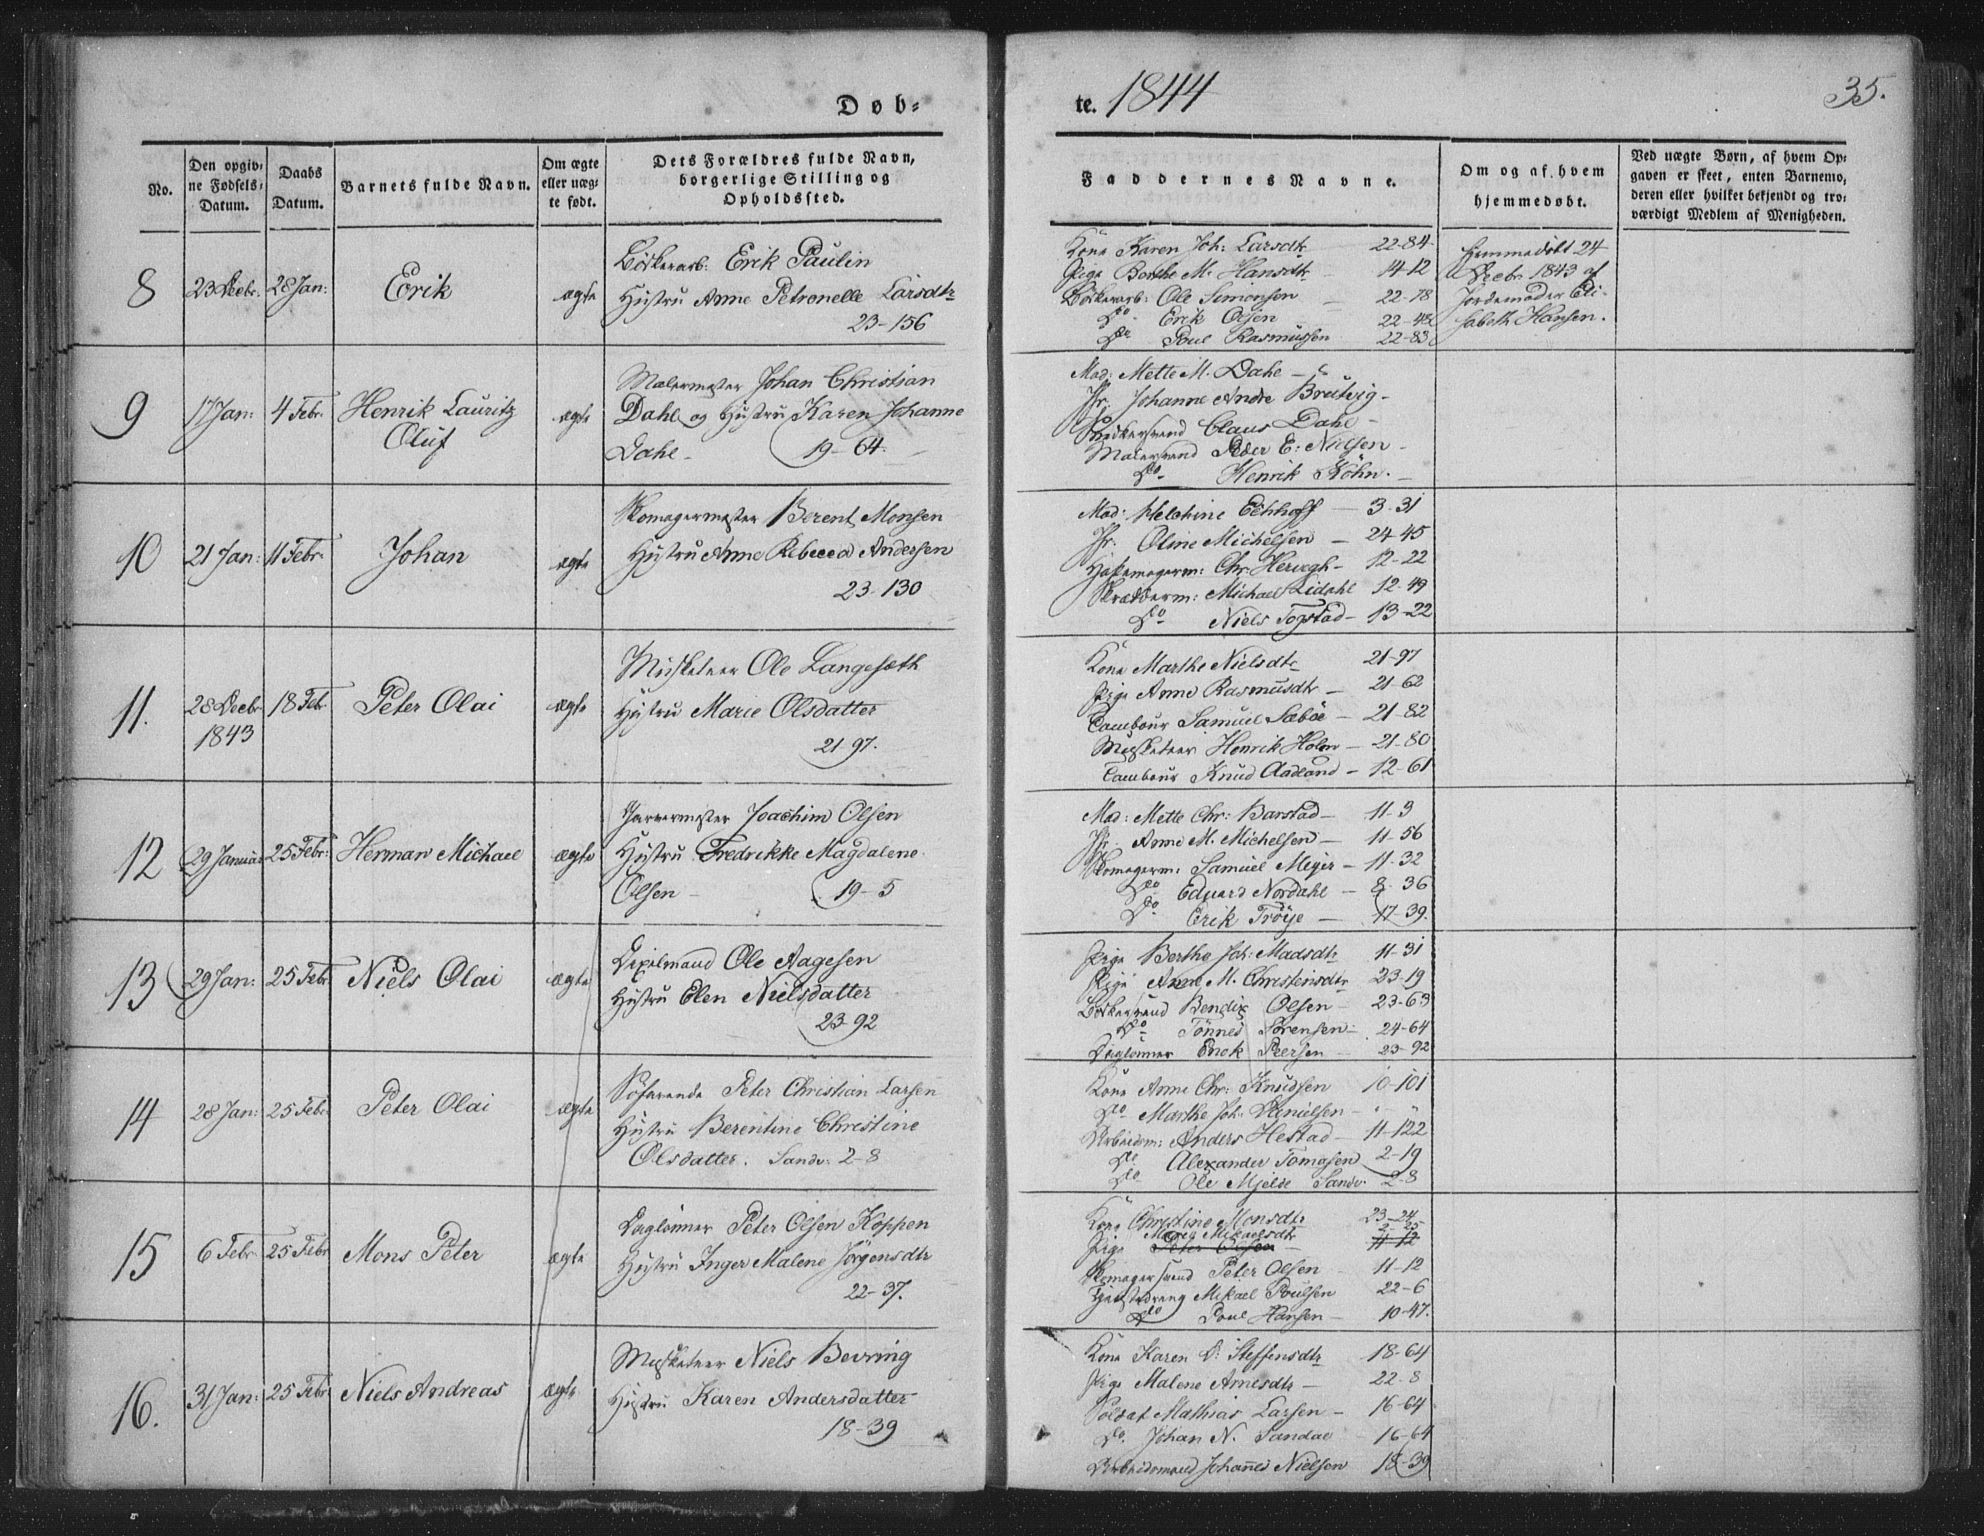 Døb-
No.
Den opgiv-
ne Fødsels-
Datum.
Daabs
Datum.
Barnets fulde Navn.
Om ægte
eller uæg-
te født.
Dets Forældres fulde Navn,
borgerlige Stilling og
Opholdssted.
8 23 Decbr. 28 Jan: Erik ægte
Bødkerarb. Erik Paulin
Hustru Anne Petronelle Larsdtr
23-156
9 17 Jan: 4 Febr. Henrik Lauritz
Oluf ægte
Malermester Johan Christian
Dahl og Hustru Karen Johanne
Dahl-
19-64.
10 21 Jan: 11 Febr. Johan ægte
Skomagermester Berent Monsen
Hustru Anne Rebecca Andersen
23-130
11. 28 Decbr.
1843
18 Febr. Peter Olai ægte
Musketeer Ole Langesæth
Hustru Marie Olsdatter
21-97.
12 29 Januar 25 Febr: Herman Michael ægte
Garvermester Joachim Olsen
Hustru Fredrikke Magdalene
Olsen-
19-5
13 29 Jan: 25 Febr. Niels Olai ægte
Ole Aagesen
Hustru Elen Nielsdatter
23-92
14 28 Jan: 25 Febr. Peter Olai ægte
Søfarende Peter Christian Larsen
Hustru Berentine Christine
Olsdatter. Sandv: 2-8
15 6 Febr. 25 Febr Mons Peter ægte
Daglønner Peter Olsen Koppen
Hustru Inger Malene Jörgensdtr
22-37.
16. 31 Jan: 25 Febr. Niels Andreas ægte
Musketeer Niels Bevring
Hustru Karen Andersdatter
18-39
te. 1844
35.
Faddernes Navne.
Om og af hvem
hjemmedøbt.
Ved uægte Børn, af hvem Op-
gaven er skeet, enten Barnemo-
deren eller hvilket bekjendt og tro-
værdigt Medlem af Menigheden.
Kone Karen Joh: Larsdtr 22-84
Pige Berthe M. Hansdtr - 14-12
Bødkerarb: Ole Simonsen - 22-78
Do Erik Olsen 22-48
Do Poul Rasmussen 22-83
Hjemmedøbt 24
Decbr 1843 af
Jordemoder Eli-
sabeth Hansen.
Mad: Mette M. Dahl -
Jfr. Johanne Andre Breitvig-
Claus Dahl -
Malersvend Peder E: Nielsen -
Do Henrik Köhn. -
Mad: Melchine Eckhoff - 3-31
Jfr. Oline Michelsen - 24-45
Chr. Hervegh- 12-22
Skrædderm: Michael Lidahl 12-49
Do Niels Togstad- 13-22
Kone Marthe Nielsdtr 21-97
Pige Anne Rasmusdtr - 21-62
Tambour Samuel Sæbøe - 21-82
Musketeer Henrik Holm - 21-80
Tambour Knud Aadland - 12-61
Mad: Mette Chr: Barstad- 11-3
Jfr. Anne M. Michelsen - 11-56
Skomagerm: Samuel Meyer - 11-32
Do Eduard Nordahl - 8-36
Do Erik Tröye - 17-39.
Pige Berthe Joh: Madsdtr 11-31
Pige Anne M. Christensdtr 23-19
Bødkersvend Bendix Olsen - 23-63
Do Tönnes Sörensen- 24-64
Daglønner Enok Peersen - 23-92
Kone Anne Chr: Knudsen 10-101
Do Marthe Joh: Danielsen - " - "
Arbeidsm: Anders Hestad - 11-122
Do Alexander Tomasen 2-19
Do Ole Mjelde Sandv. 2-8
Kone Christine Monsdtr 23-24
Maria Mikaelsdtr 2-25
Pige Peter Olsen - 11-12
Skomagersvend Peter Olsen 11-12
Tjenestedreng Mikael Poulsen 22-6
Do Poul Hansen - 10-47.
Kone Karen D: Steffensdtr 18-64
Pige Malene Arnesdtr - 22-8
Soldat Mathias Larsen - 16-64
Do. Johan N. Sandal - 16-64
Arbeidsmand Johannes Nielsen 18-39